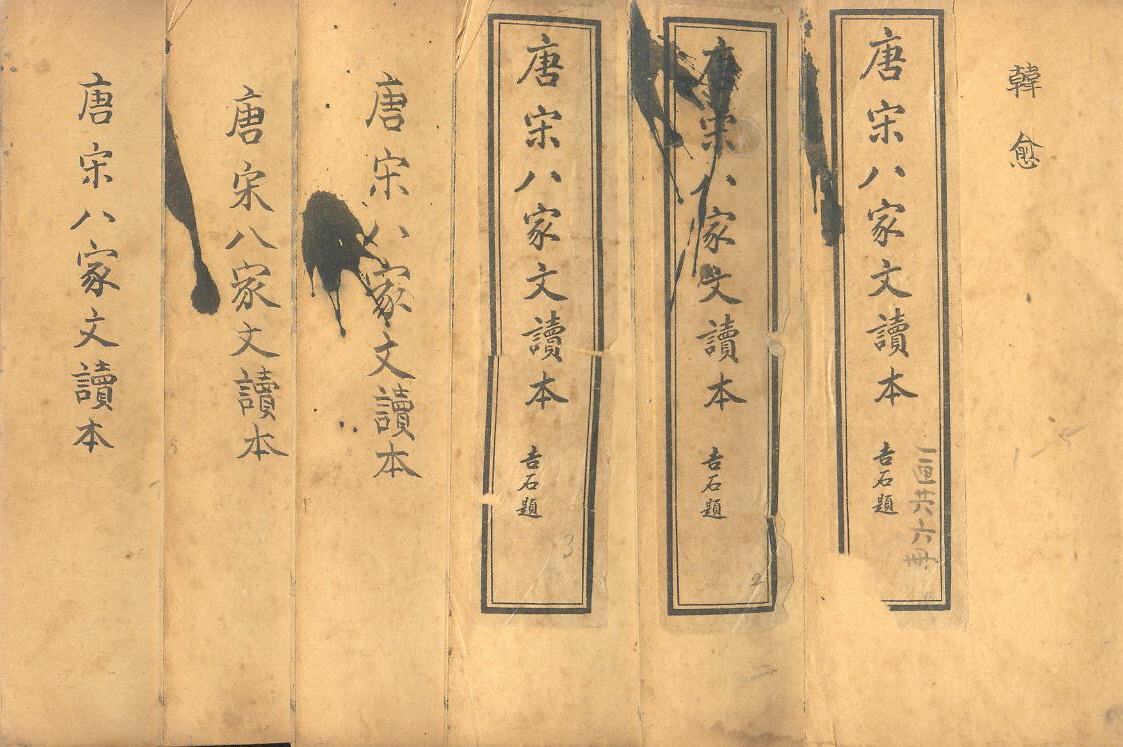 韓愈
唐宋八家文讀本
吉石題
一函共六冊
唐宋八家文讀本
吉石題
2
唐宋八家文讀本
吉石題
3
唐宋八家文讀本
唐宋八家文讀本
唐宋八家文讀本